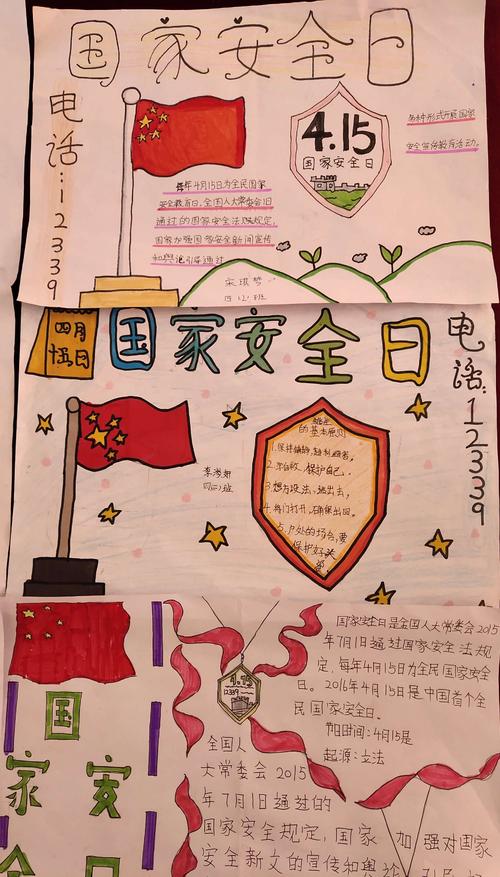 国家安全日
电话:12339
4.15
国家安全日
各种形式开展国家
安全宣传教育活动。
每年4月15日为全民国家
安全教育日。全国人大常委会1日
通过的国家安全法规规定,
国家加强国家安全新闻宣传
和舆论引导通过
四(2)班
四月
十五日
国家安全日
电话:12339
的基本原则
1.保持镇静,
2.
保护自己.
3.想方设法,逃出去,
4.将门打开,确保出口。
5.户外的场合,要
保护好头
四(2)班
国家安全日是全国人大常委会2015
年7月1日通过国家安全法规
定,每年4月15日为全民国家安全
日。2016年4月15日是中国首个全
民国家安全日。
节日时间:4月15是
起源:立法
4.15
12339
国
家安
全日
全国人
大常委会2015
年7月1日通过的
国家安全规定,国家加强对国家
安全新文的宣传和舆论引导